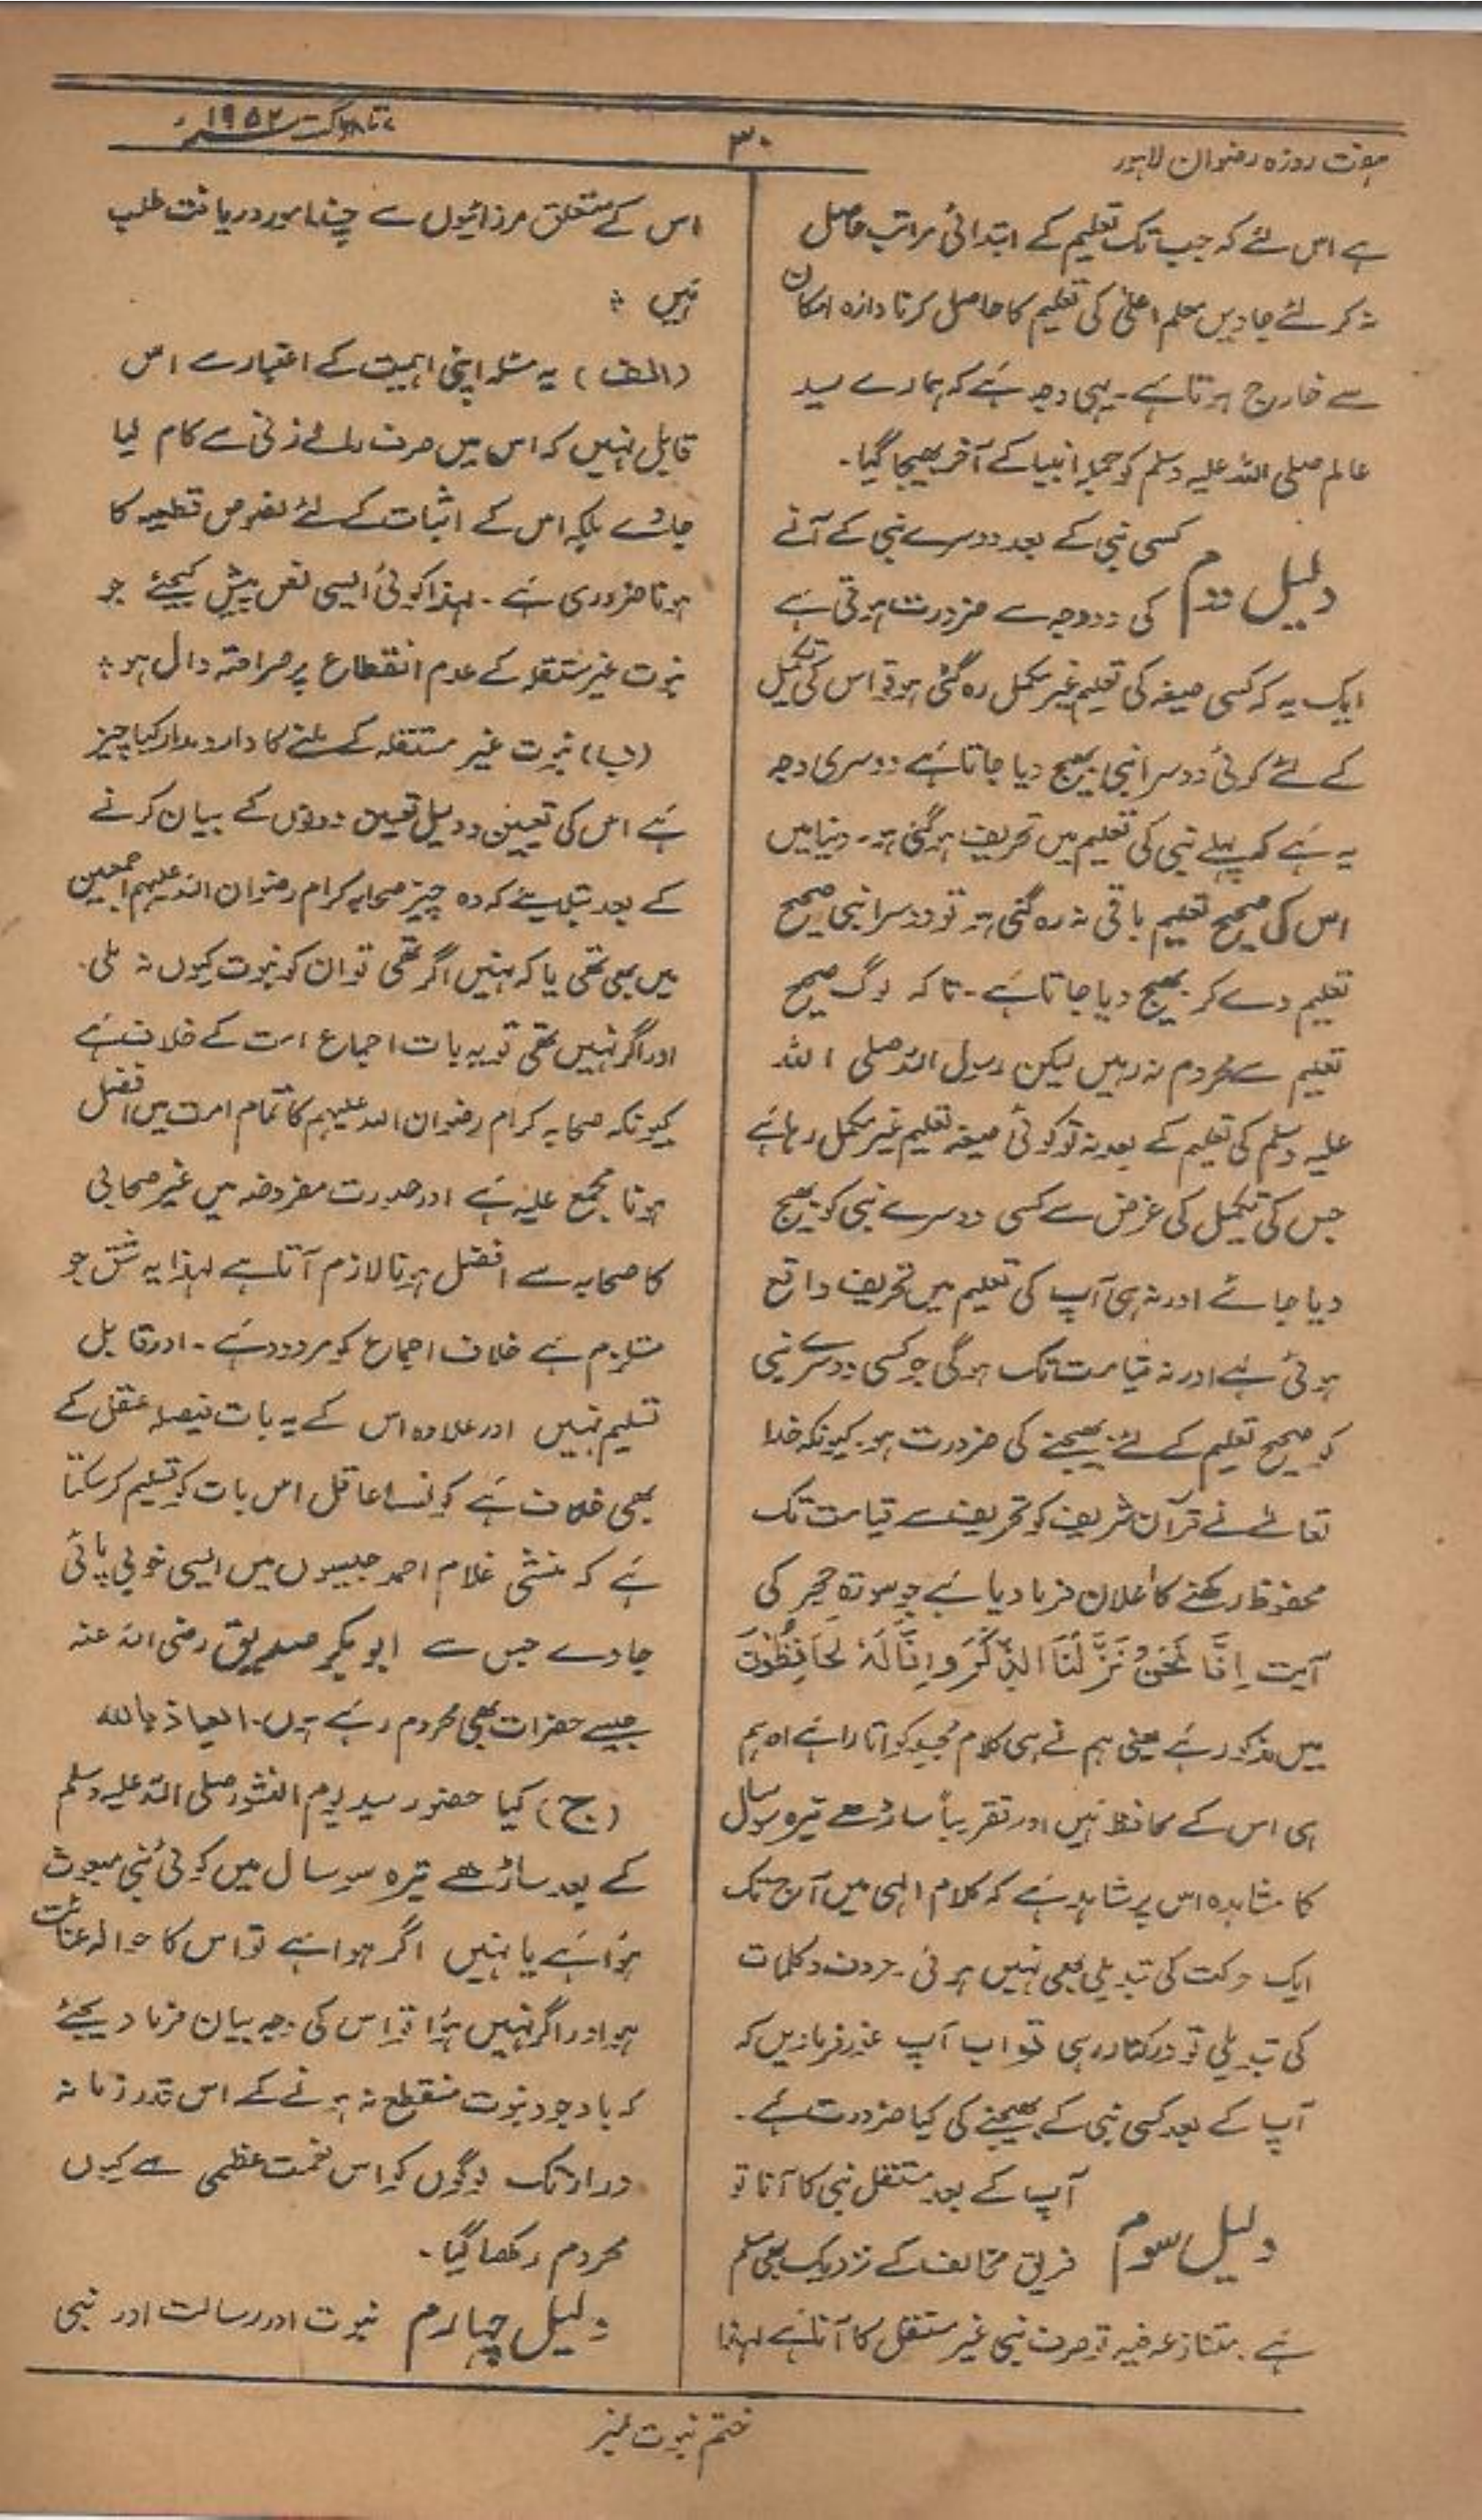 ہفت روزہ رضوان لاہور
۳۰
۷ تا اگست ۱۹۵۲ء
ہے اس لئے کہ جب تک تعلیم کے ابتدائی مراتب حاصل
نہ کر لئے جاویں معلم اعلیٰ کی تعلیم کا حاصل کرنا دائرہ امکان
سے خارج ہوتا ہے۔ یہی وجہ ہے کہ ہمارے سید
عالم صلی اللہ علیہ وسلم کو جملہ انبیا کے آخر بھیجا گیا۔
دلیل دوم
کسی نبی کے بعد دوسرے نبی کے آنے
کی دو وجہ سے ضرورت ہوتی ہے
ایک یہ کہ کسی صیغہ کی تعلیم غیر مکمل رہ گئی ہو تو اس کی تکمیل
کے لئے کوئی دوسرا نبی بھیج دیا جاتا ہے دوسری وجہ
یہ ہے کہ پہلے نبی کی تعلیم میں تحریف ہو گئی ہو۔ دنیا میں
اس کی صحیح تعلیم باقی نہ رہ گئی ہو تو دوسرا نبی صحیح
تعلیم دے کر بھیج دیا جاتا ہے۔ تاکہ لوگ صحیح
تعلیم سے محروم نہ رہیں لیکن رسول اللہ صلی اللہ
علیہ وسلم کی تعلیم کے بعد نہ تو کوئی صیغہ تعلیم غیر مکمل رہا ہے
جس کی تکمیل کی غرض سے کسی دوسرے نبی کو بھیج
دیا جائے اور نہ ہی آپ کی تعلیم میں تحریف واقع
ہوئی ہے اور نہ قیامت تک ہوگی جو کسی دوسرے نبی
کو صحیح تعلیم کے لئے بھیجنے کی ضرورت ہو۔ کیونکہ خدا
تعالےٰ نے قرآن شریف کو تحریف سے قیامت تک
محفوظ رکھنے کا اعلان فرما دیا ہے جو سورۃ حجر کی
آیت اِنَّا نَحْنُ نَزَّلْنَا الذِّکْرَ وَاِنَّا لَہٗ لَحَافِظُوْنَ
میں مذکور ہے یعنی ہم نے ہی کلام مجید کو اتارا ہے اور ہم
ہی اس کے محافظ ہیں اور تقریباً ساڑھے تیرہ سو سال
کا مشاہدہ اس پر شاہد ہے کہ کلام الٰہی میں آج تک
ایک حرکت کی تبدیلی بھی نہیں ہوئی۔ حروف و کلمات
کی تبدیلی تو درکنار رہی تو اب آپ غور فرما دیں کہ
آپ کے بعد کسی نبی کے بھیجنے کی کیا ضرورت ہے۔
دلیل سوم
آپ کے بعد مستقل نبی کا آنا تو
فریق مخالف کے نزدیک بھی مسلم
ہے۔ متنازعہ فیہ تو صرف نبی غیر مستقل کا آنا ہے لہٰذا
اس کے متعلق مرزائیوں سے چند امور دریافت طلب
ہیں ؛
(الف) یہ مسئلہ اپنی اہمیت کے اعتبار سے اس
قابل نہیں کہ اس میں صرف رائے زنی سے کام لیا
جائے بلکہ اس کے اثبات کے لئے نصوص قطعیہ کا
ہونا ضروری ہے۔ لہذا کوئی ایسی نص پیش کیجئے جو
نبوت غیر مستقلہ کے عدم انقطاع پر صراحتہ دال ہو ؛
(ب) نبوت غیر مستقلہ کے ملنے کا دارومدار کیا چیز
ہے اس کی تعیین و دلیل تعیین دونوں کے بیان کرنے
کے بعد بتلایئے کہ وہ چیز صحابہ کرام رضوان اللہ علیہم اجمعین
میں بھی تھی یا کہ نہیں اگر تھی تو ان کو نبوت کیوں نہ ملی۔
اور اگر نہیں تھی تو یہ بات اجماع امت کے خلاف ہے
کیونکہ صحابہ کرام رضوان اللہ علیہم کا تمام امت میں افضل
ہونا مجمع علیہ ہے اور صورت مفروضہ میں غیر صحابی
کا صحابہ سے افضل ہونا لازم آتا ہے لہذا یہ شق جو
مستلزم ہے خلاف اجماع کو مردود ہے۔ اور قابل
تسلیم نہیں اور علاوہ اس کے یہ بات فیصلہ عقل کے
بھی خلاف ہے کونسا عاقل اس بات کو تسلیم کر سکتا
ہے کہ منشی غلام احمد جیسوں میں ایسی خوبی پائی
جاوے جس سے ابوبکر صدیق رضی اللہ عنہ
جیسے حضرات بھی محروم رہے ہوں۔ العیاذ باللہ
(ج) کیا حضور سید یوم النشور صلی اللہ علیہ وسلم
کے بعد ساڑھے تیرہ سو سال میں کوئی نبی مبعوث
ہوا ہے یا نہیں اگر ہوا ہے تو اس کا حوالہ عنائت
ہو اور اگر نہیں ہوا تو اس کی وجہ بیان فرما دیجئے
کہ باوجود نبوت منقطع نہ ہونے کے اس قدر زمانہ
دراز تک لوگوں کو اس نعمت عظمی سے کیوں
محروم رکھا گیا۔
دلیل چہارم نبوت اور رسالت اور نبی
ختم نبوت نمبر